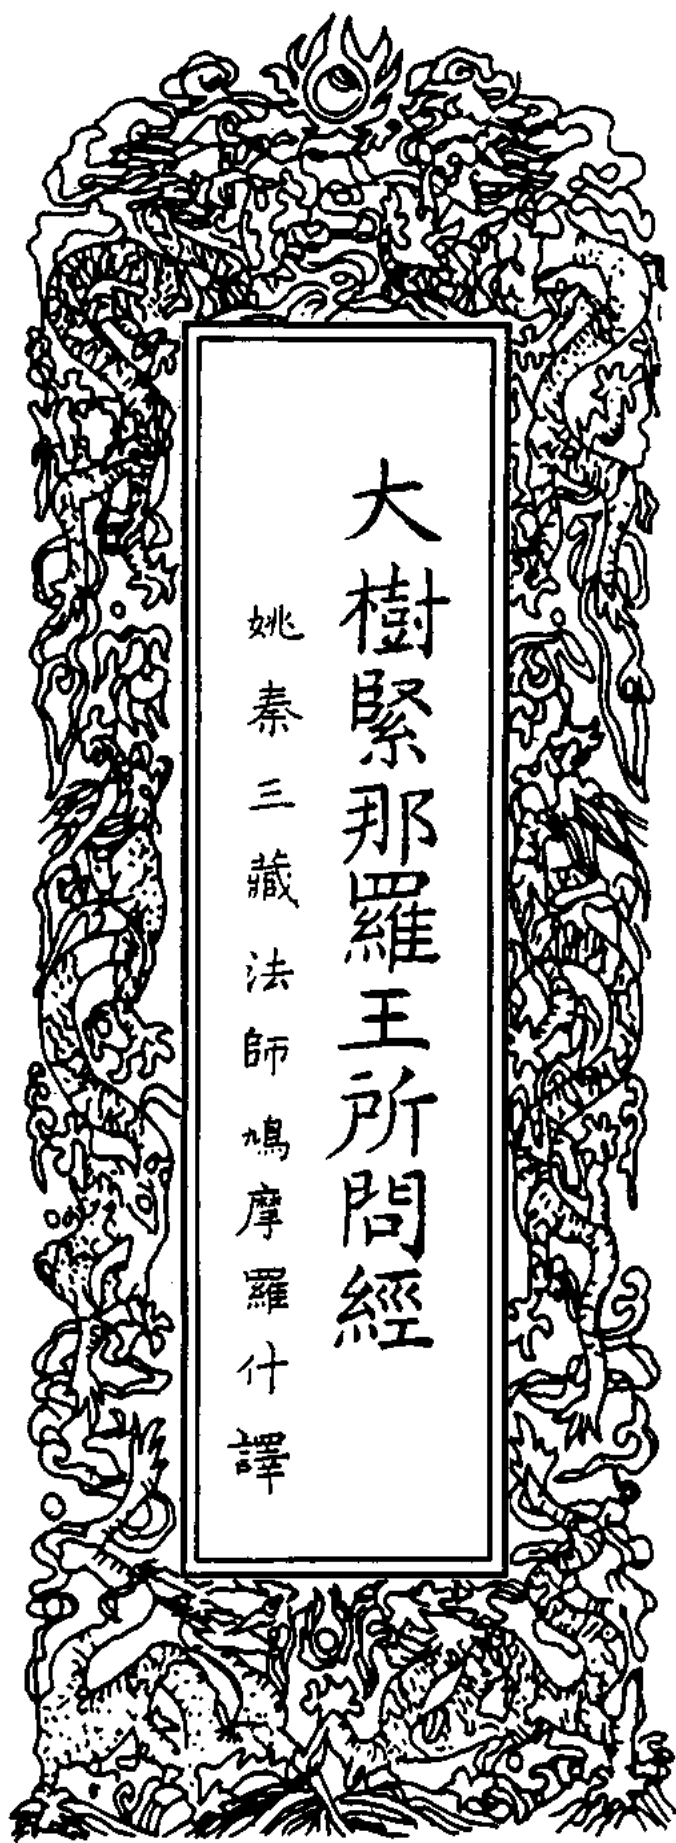 大樹緊那羅王所問經
姚秦三藏法師鳩摩羅什譯